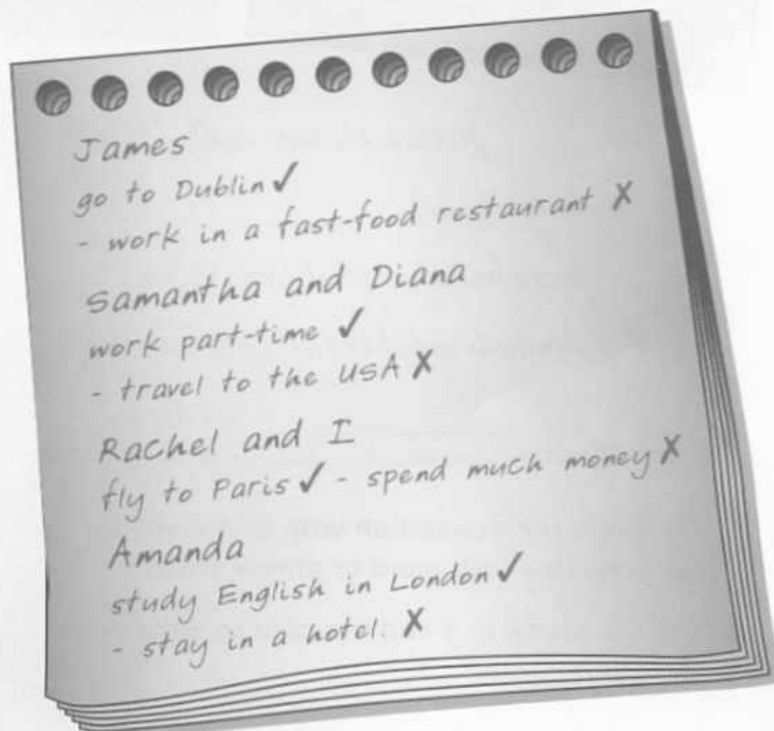 James
go to Dublin ✓
- work in a fast-food restaurant ✗
Samantha and Diana
work part-time ✓
- travel to the USA ✗
Rachel and I
fly to Paris ✓ - spend much money ✗
Amanda
study English in London ✓
- stay in a hotel. ✗